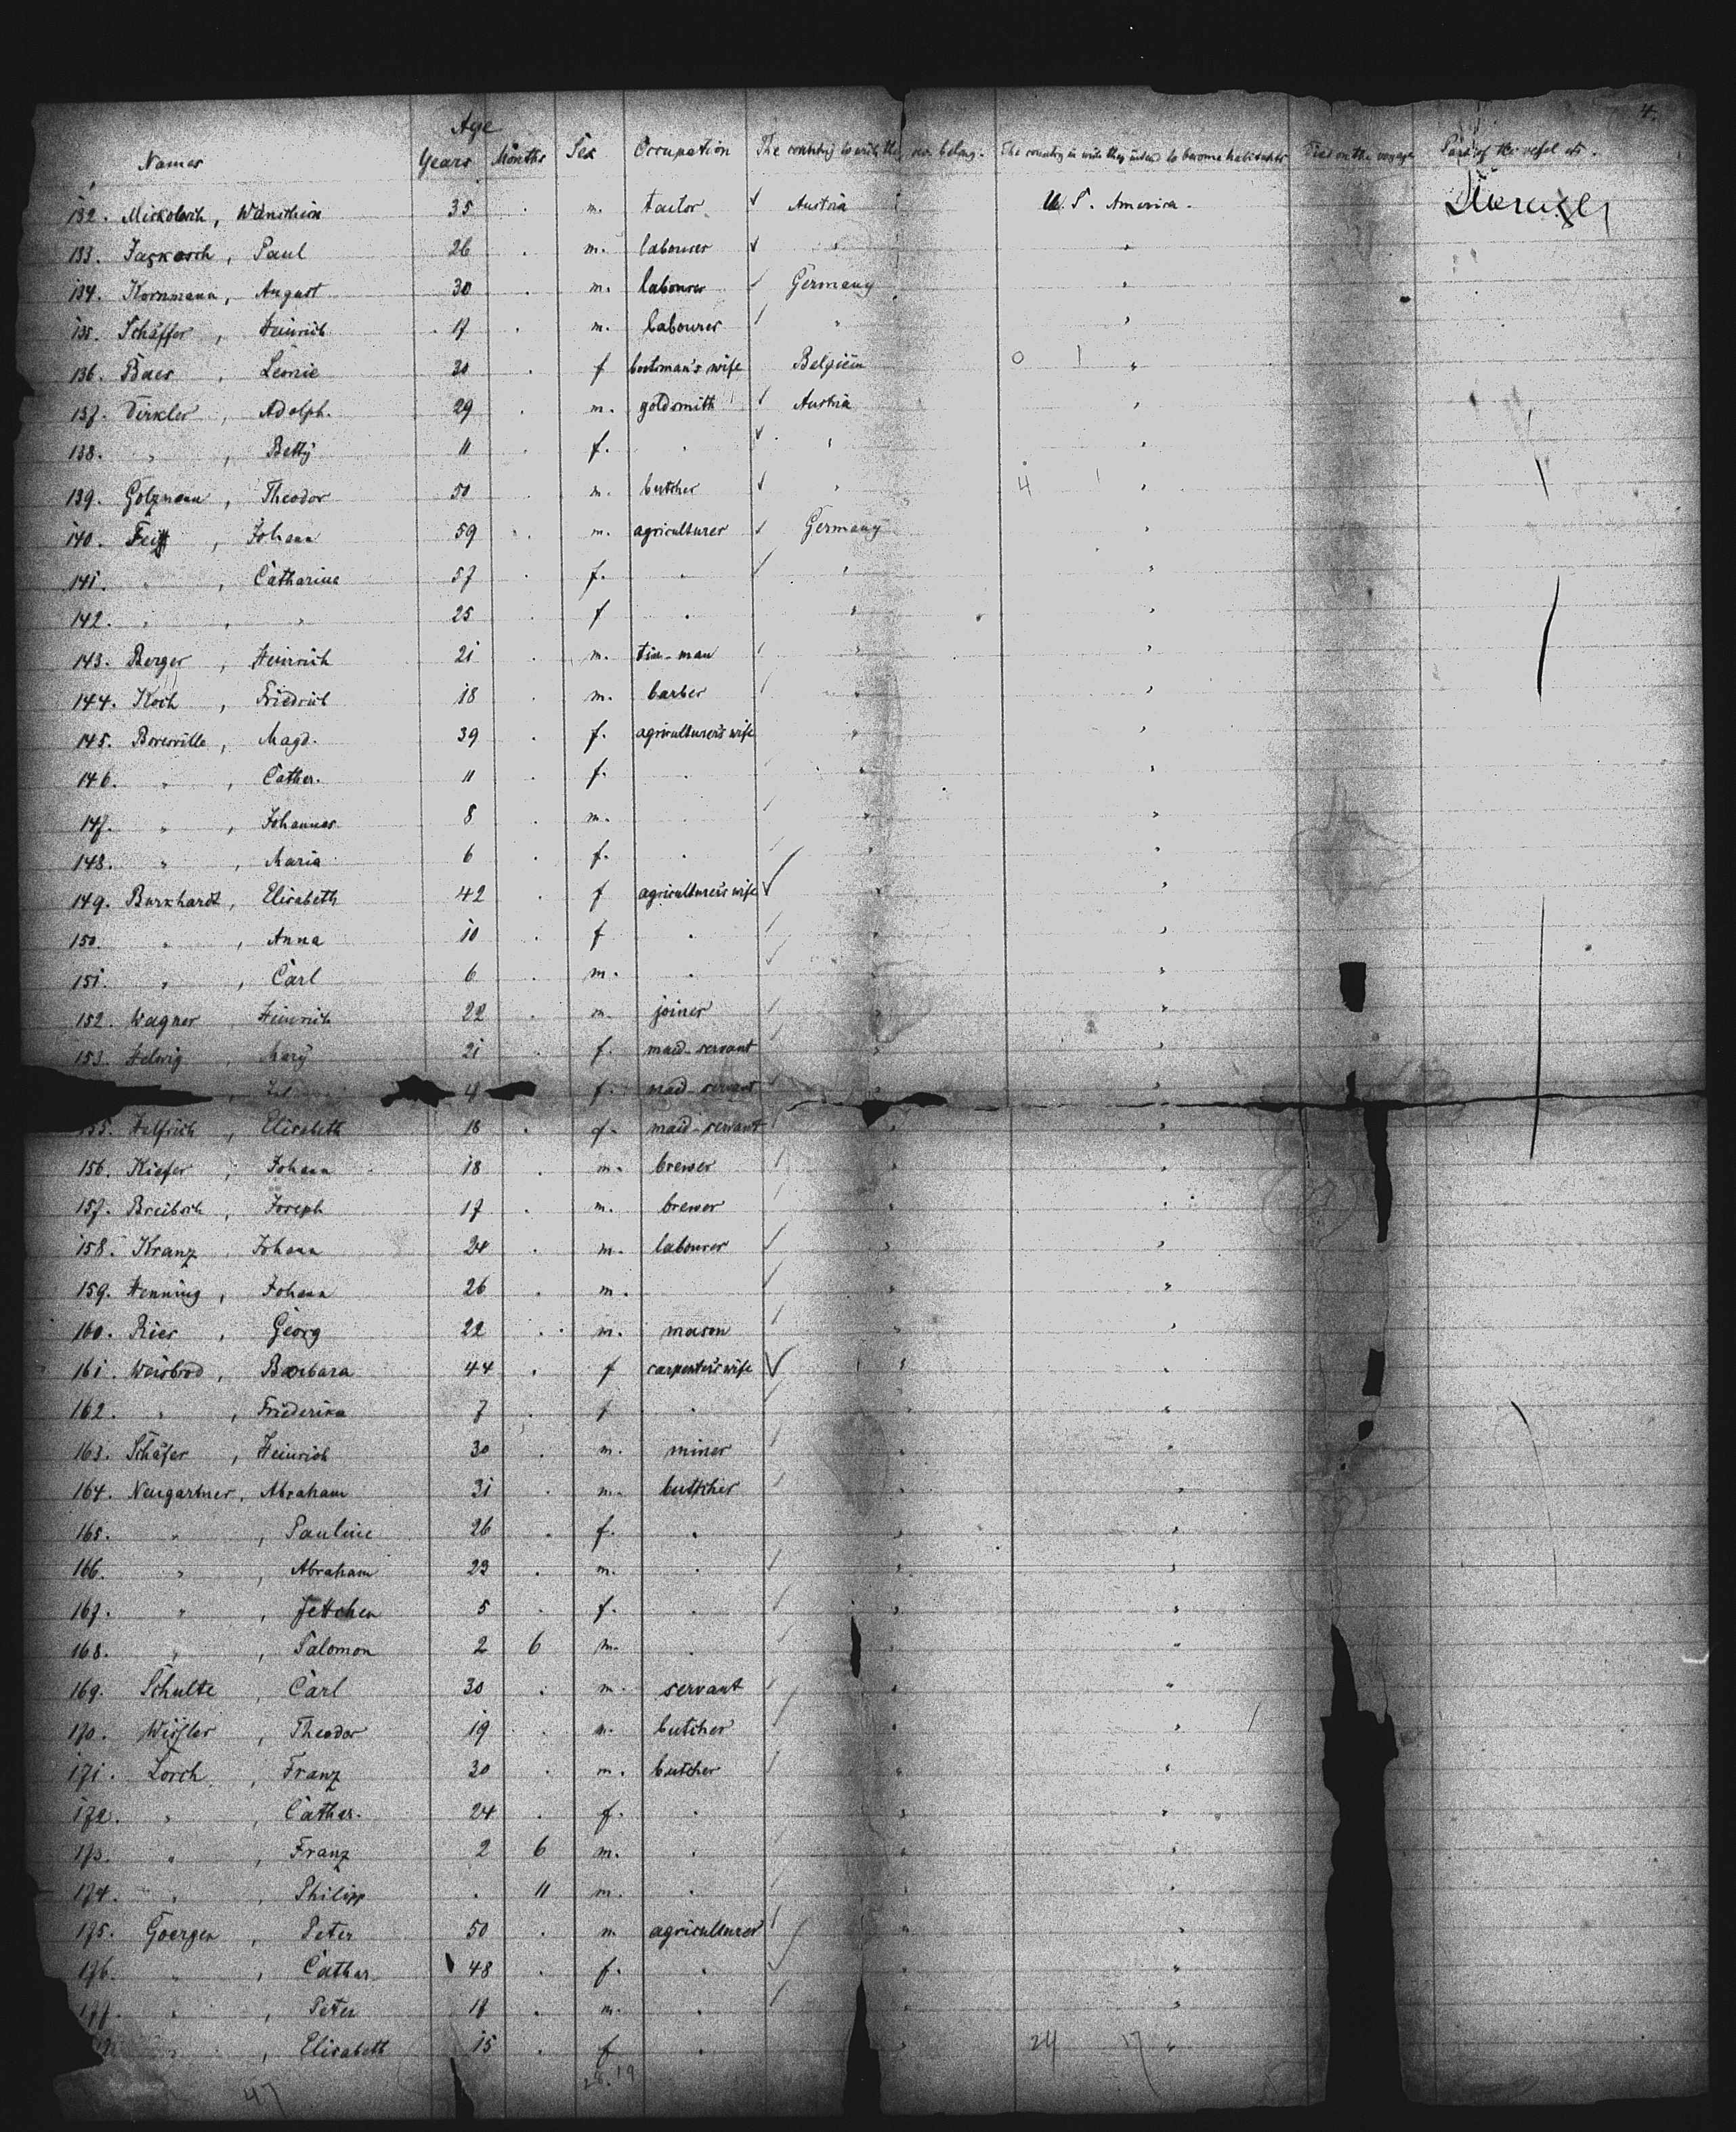 4.
Age
Names Years Months Sex Occupation The country to wich they sev. belong. The country in wich they intend to become habitants Died on the voyage Part of the vessel etc.
132. , 35 . m. Austria U. S. America.
133. Jaskosch, Paul 26 . m. labourer " "
134. Kornmann, August 30 . m. labourer Germany "
135. Schäffer, Heinrich 17 . m. labourer " "
136. Baes, Leonie 30 . f wife Belgien 0 1 "
137. Dirkler, Adolph. 29 . m. goldsmith Austria "
138. " , Betty 11 . f. . " "
139. Golzmann, Theodor 50 . m. butcher " 4 1 "
140. , Johann 59 . m. agriculturer Germany "
141. " , Catharine 57 . f. . " "
142. " , " 25 . f . " "
143. Berger, Heinrich 21 . m. tin-man " "
144. Koch, Friedrich 18 . m. barber " "
145. , Magd. 39 . f. agriculturer's wife " "
146. " , Cather. 11 . f. . " "
147. " , Johannes 8 . m. . " "
148. " , Maria 6 . f. . " "
149. Burkhardt, Elisabeth 42 . f agriculturer's wife " "
150. " , Anna 10 . f . " "
151. " , Carl 6 . m. . " "
152. Wagner, Heinrich 22 . m. joiner " "
153. Helwig, Mary 21 . f. maid-servant " "
, f. maid-servant " "
155. Helfrich, Elisabeth 18 . f. maid-servant " "
156. Kiefer, Johann 18 . m. brewer " "
157. Breibsch, Joseph 17 . m. brewer " "
158. Kranz, Johann 24 . m. labourer " "
159. Henning, Johann 26 . m. " "
160. Ries, Georg 22 . m. mason " "
161. Weisbrod, Barbara 44 . f carpenter's wife " "
162. " , Friederika 7 . f . " "
163. Schäfer, Heinrich 30 . m. miner " "
164. Neugartner, Abraham 31 . m. butcher " "
165. " , Pauline 26 . f. . " "
166. " , Abraham 23 . m. . " "
167. " , Jettchen 5 . f. . " "
168. " , Salomon 2 6 m. . " "
169. Schulte, Carl 30 . m. servant " "
170. , Theodor 19 . m. butcher " "
171. Lorch, Franz 30 . m. butcher " "
172. " , Cather. 24 . f. . " "
173. " , Franz 2 6 m. . " "
174. " , Philipp . 11 m. . " "
175. Goergen, Peter 50 . m agriculturer " "
176. " , Cather. 48 . f. . " "
177. " , Peter 17 . m. . " "
" , Elisabeth 15 . f . " 24 17 "
47 19